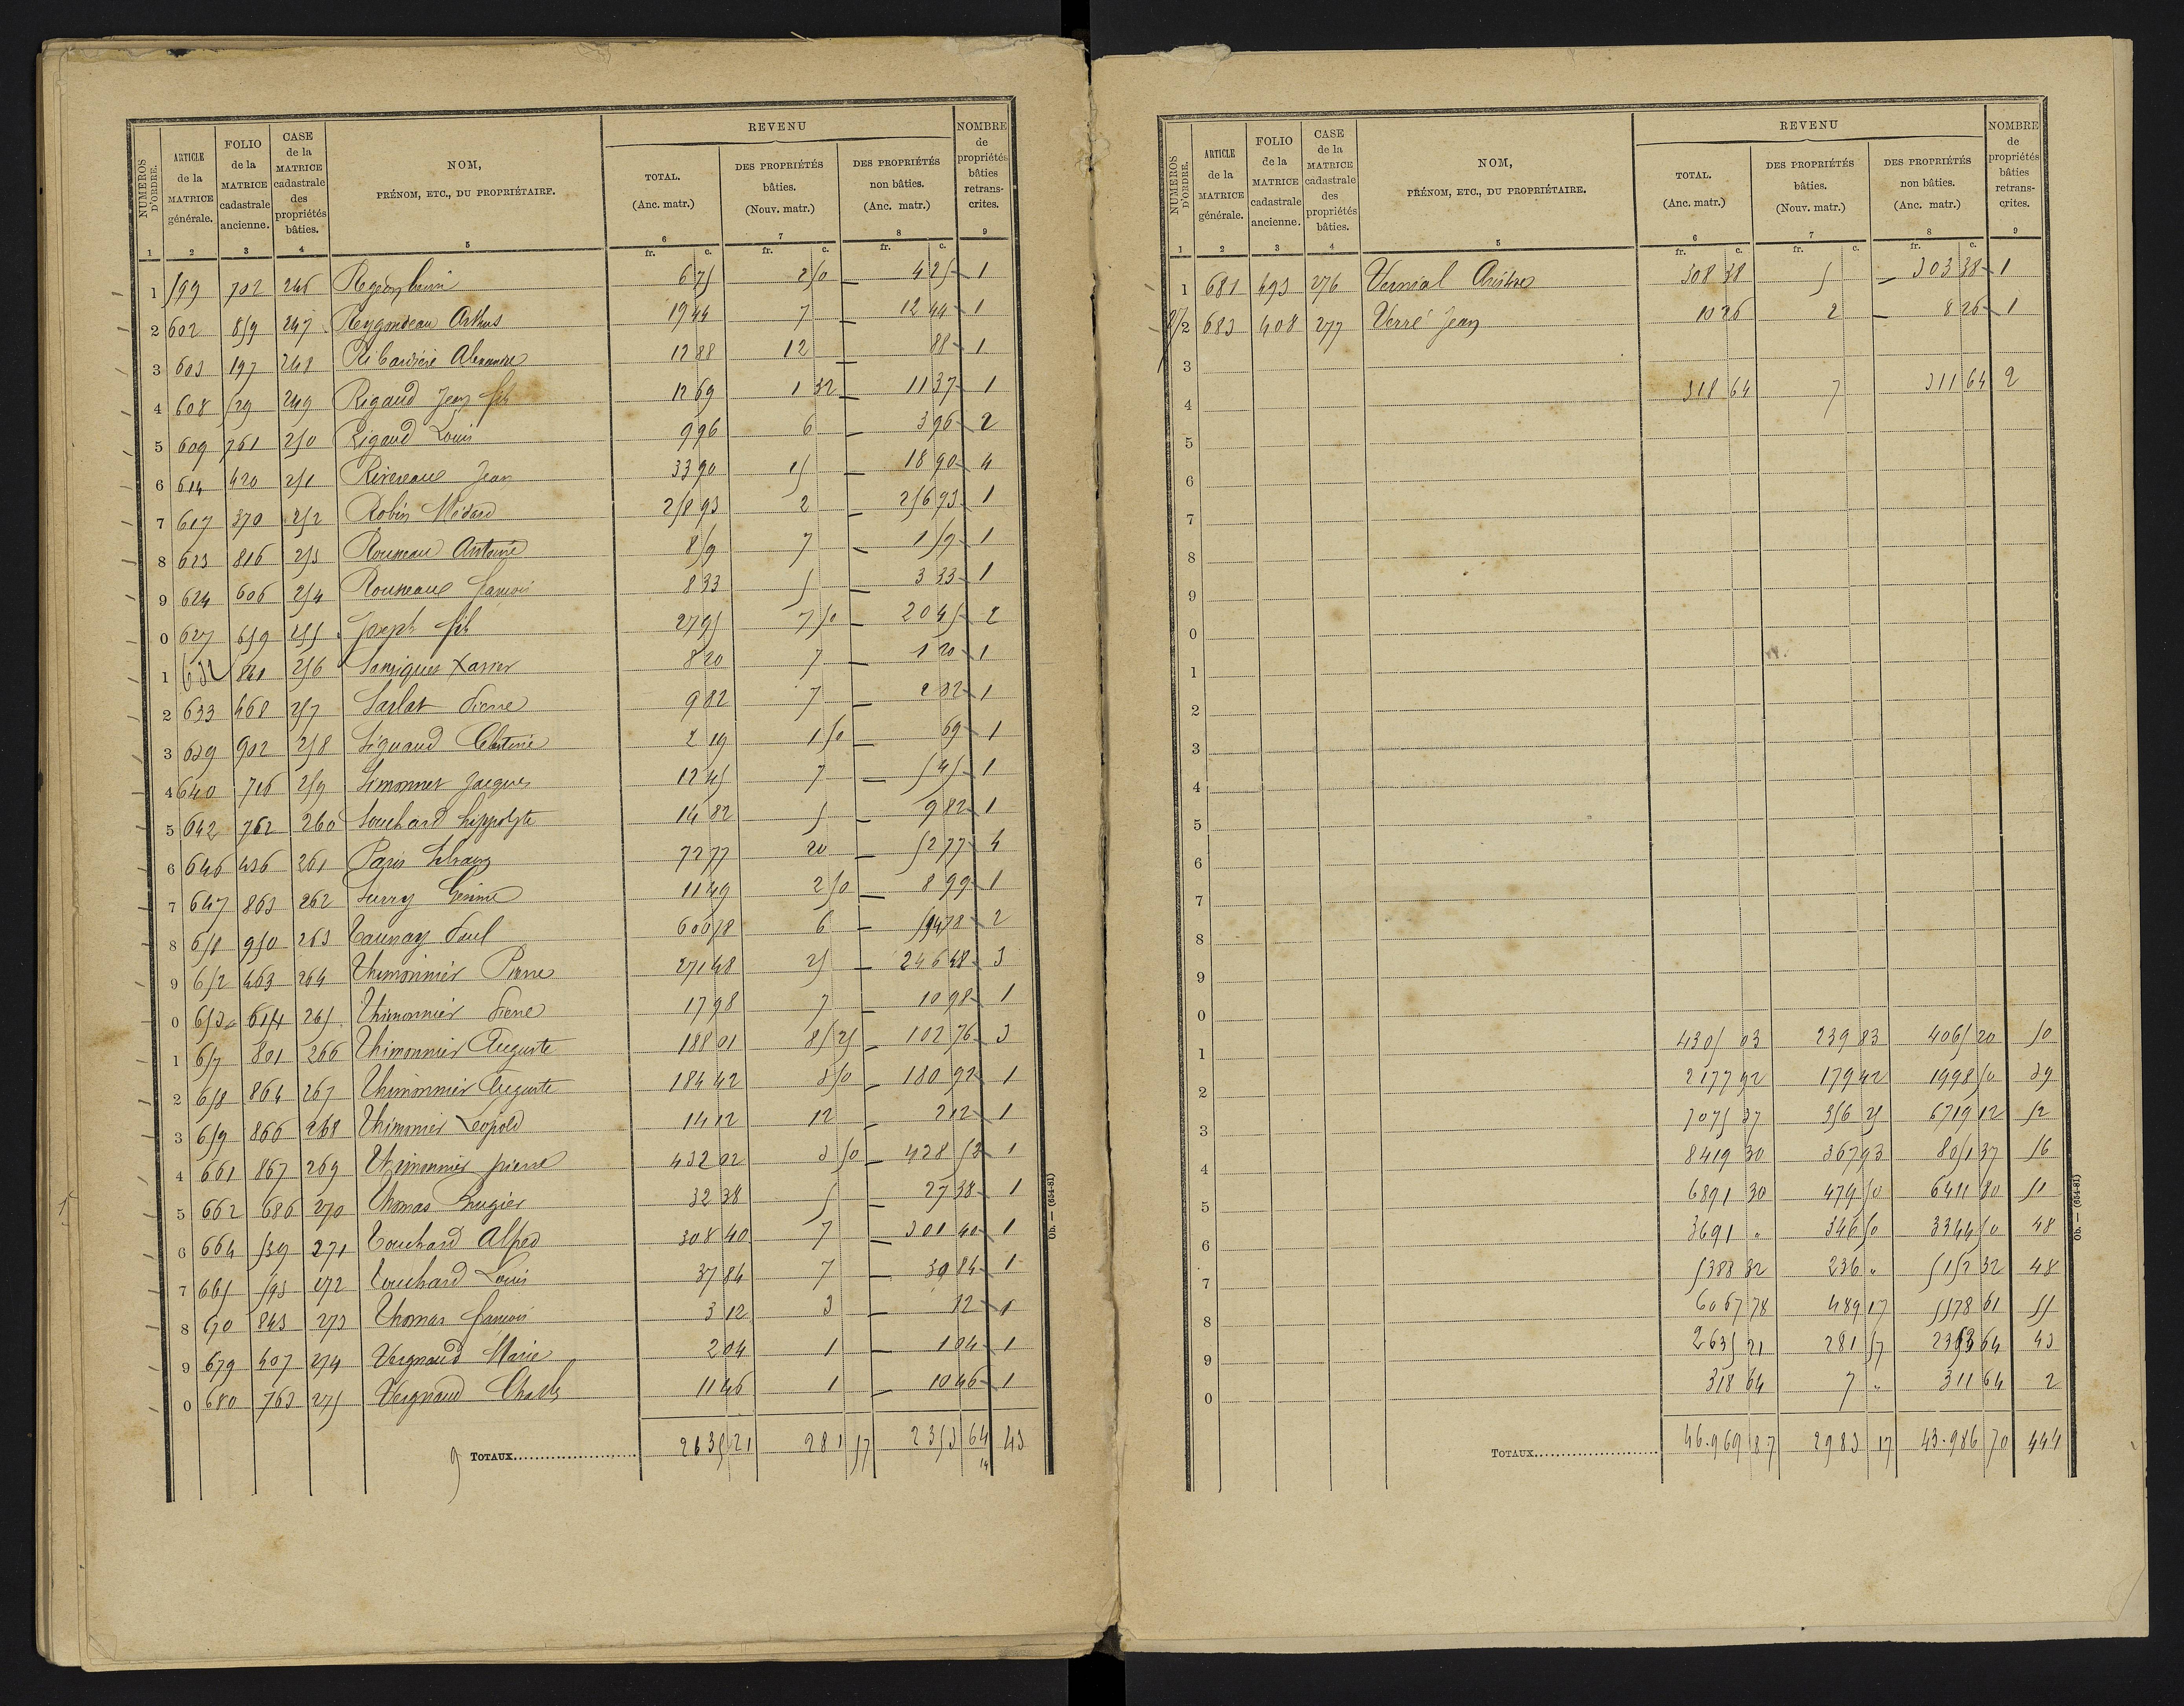 NUMÉROS D'ORDRE. ARTICLE de la MATRICE générale. FOLIO de la MATRICE cadastrale ancienne. CASE de la MATRICE cadastrale des propriétés bâties. NOM, PRÉNOM, ETC., DU PROPRIÉTAIRE. REVENU TOTAL. (Anc. matr.) DES PROPRIÉTÉS bâties. (Nouv. matr.) DES PROPRIÉTÉS non bâties. (Anc. matr.) NOMBRE de propriétés bâties retranscrites.
1 2 3 4 5 6 7 8 9
fr. c. fr. c. fr. c.
1 599 702 246 6 75 2 50 4 25 1
2 602 859 247 Reygondeau Arthus 19 44 7 12 44 1
3 603 197 248 Ribardière Alexandre 12 88 12 88 1
4 608 529 249 Rigaud Jean fils 12 69 1 32 11 37 1
5 609 761 250 Rigaud Louis 9 96 6 3 96 2
6 614 420 251 Jean 33 90 15 18 90 4
7 617 370 252 Robin Médard 258 93 2 256 93 1
8 623 816 253 Rouneau Antoine 8 59 7 1 59 1
9 624 606 254 Rouneau françois 8 33 5 3 33 1
0 627 659 255 Joseph fils 27 95 7 50 20 45 2
1 632 841 256 Xavier 8 20 7 1 20 1
2 633 468 257 Sarlat Pierre 9 82 7 2 82 1
3 639 902 258 2 19 1 50 69 1
4 640 716 259 Simonnet Jacques 12 45 7 5 45 1
5 642 762 260 Souchard hippolyte 14 82 5 9 82 1
6 646 436 261 72 77 20 52 77 4
7 647 863 262 11 49 2 50 8 99 1
8 651 950 263 Taunay Paul 600 78 6 594 78 2
9 652 463 264 Thimonnier Pierre 271 48 25 246 48 3
0 653 614 265 Thimonnier Pierre 17 98 7 10 98 1
1 657 801 266 Thimonnier Auguste 188 01 85 25 102 76 3
2 658 864 267 Thimonnier Auguste 184 42 3 50 180 92 1
3 659 866 268 Thimonnier Léopold 14 12 12 2 12 1
4 661 867 269 Thimonnier pierre 432 02 3 50 428 52 1
5 662 686 270 Thomas 32 38 5 27 38 1
6 664 539 271 Touchard Alfred 308 40 7 301 40 1
7 665 593 272 Touchard Louis 37 84 7 30 84 1
8 670 843 273 Thomas françois 3 12 3 12 1
9 679 407 274 Vergnaud Marie 2 04 1 1 04 1
0 680 763 275 Vergnaud Charles 11 46 1 10 46 1
9 TOTAUX 2635 21 281 57 2353 64 43
Ob. — (654-81)
NUMÉROS D'ORDRE. ARTICLE de la MATRICE générale. FOLIO de la MATRICE cadastrale ancienne. CASE de la MATRICE cadastrale des propriétés bâties. NOM, PRÉNOM, ETC., DU PROPRIÉTAIRE. REVENU TOTAL. (Anc. matr.) DES PROPRIÉTÉS bâties. (Nouv. matr.) DES PROPRIÉTÉS non bâties. (Anc. matr.) NOMBRE de propriétés bâties retranscrites.
1 2 3 4 5 6 7 8 9
fr. c. fr. c. fr. c.
1 681 493 276 308 38 5 303 38 1
2 683 408 277 Verré Jean 10 26 2 8 26 1
3
4 318 64 7 311 64 2
5
6
7
8
9
0
1
2
3
4
5
6
7
8
9
0
1 4305 03 239 83 4065 20 50
2 2177 92 179 42 1998 50 39
3 7075 37 356 25 6719 12 52
4 8419 30 367 93 8051 37 56
5 6891 30 479 50 6411 80 51
6 3691 " 346 50 3344 50 48
7 5388 32 236 " 5152 32 48
8 6067 78 489 17 5578 61 55
9 2635 21 281 57 2353 64 43
0 318 64 7 " 311 64 2
TOTAUX 46.969 87 2983 17 43.986 70 444
Ob. — (654-81)